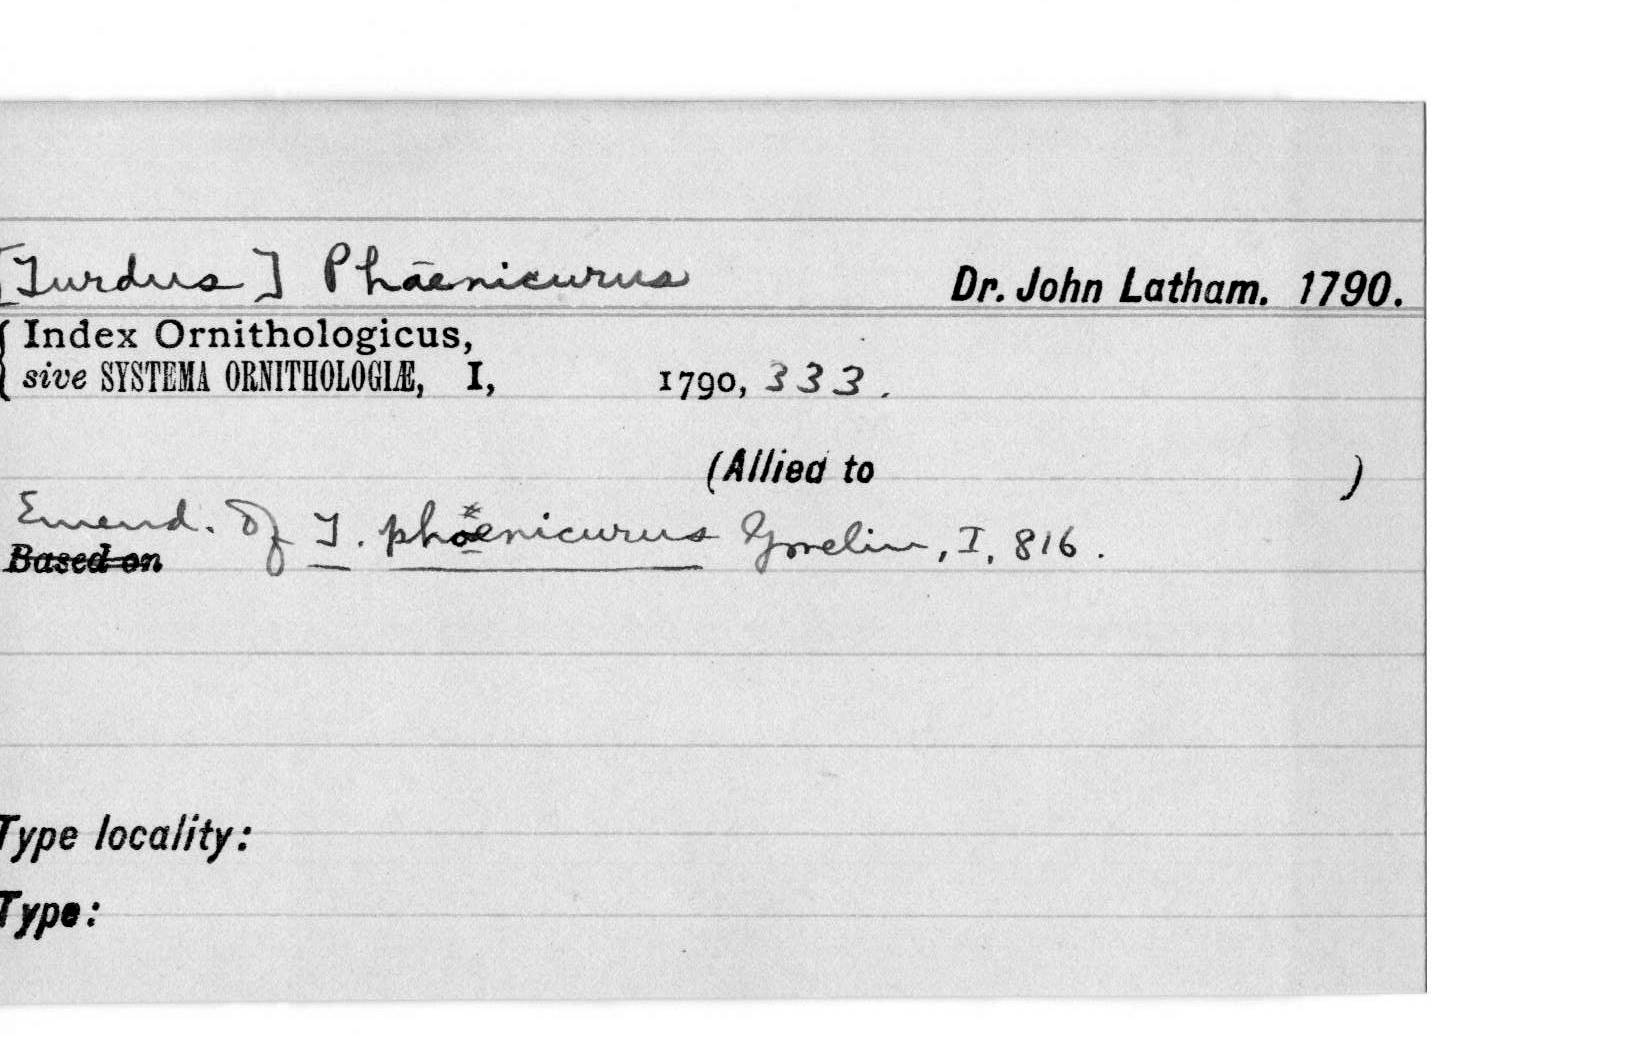 [Turdus] Phaenicurus Dr. John Latham. 1790.
{ Index Ornithologicus,
sive SYSTEMA ORNITHOLOGIÆ, I, 1790, 333.
(Allied to )
Emend. of T. phoenicurus Gmelin, I, 816.
Based on
Type locality:
Type: